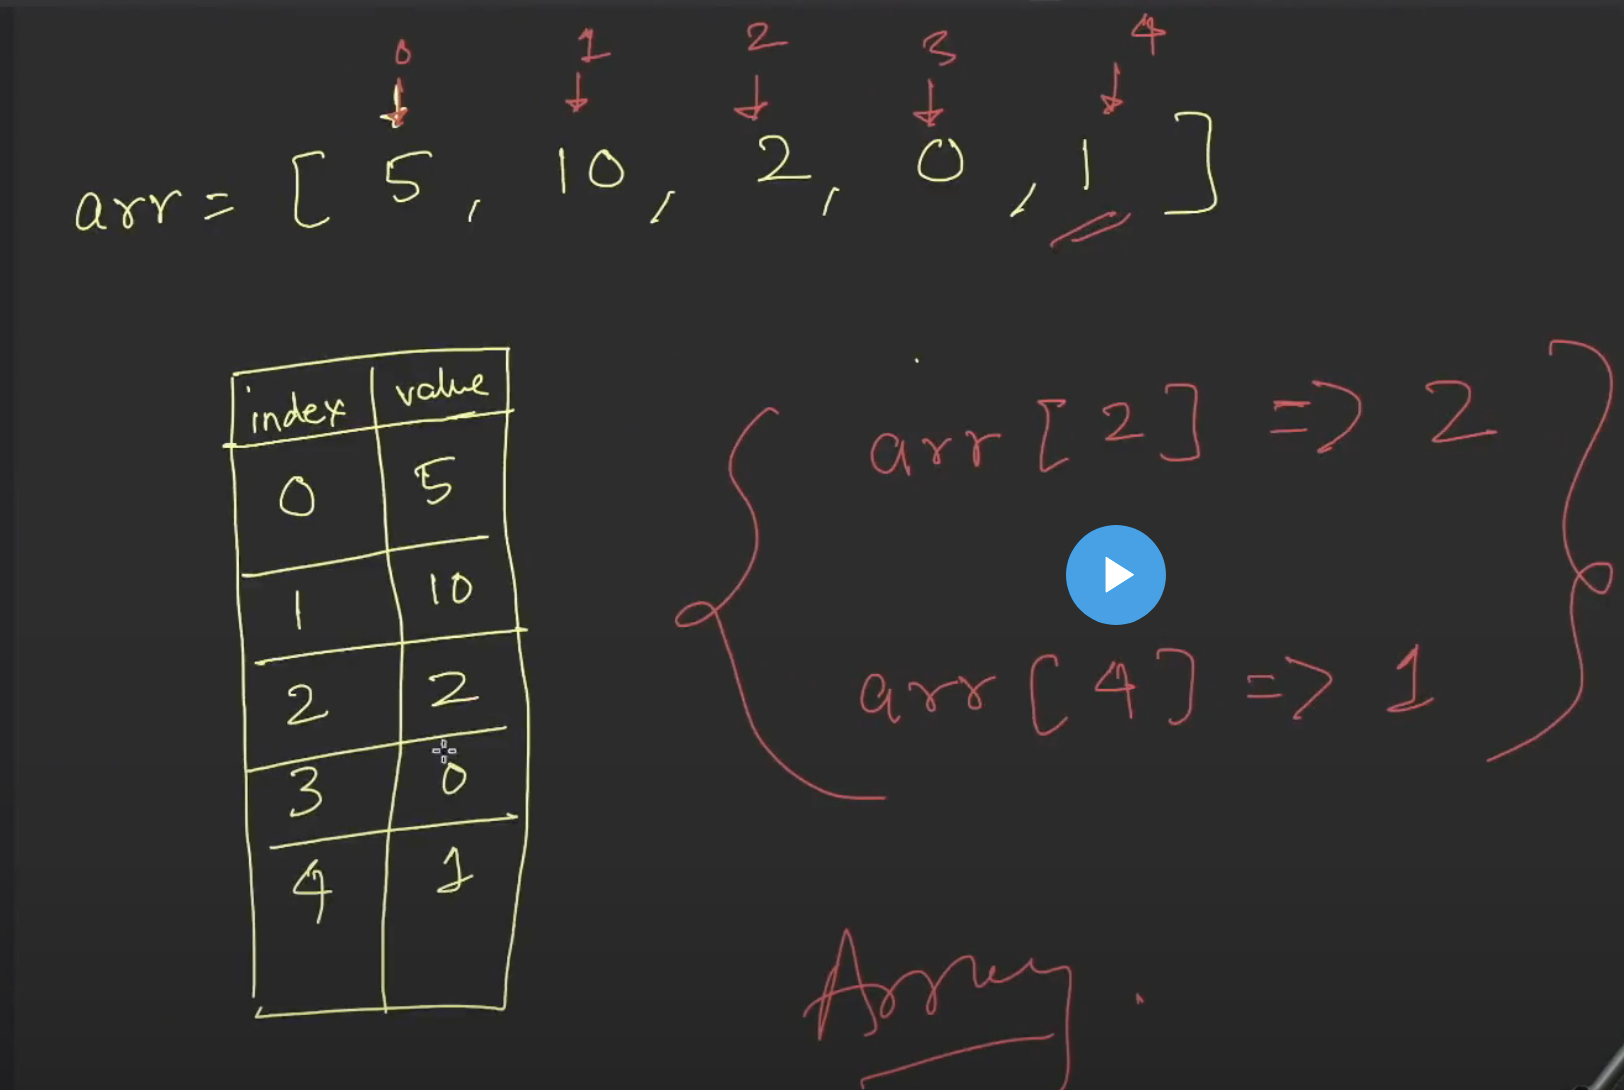 0 1 2 3 4
arr = [ 5, 10, 2, 0, 1 ]
index value
0 5
1 10
2 2
3 0
4 1
arr [ 2 ] => 2
arr [ 4 ] => 1
Array